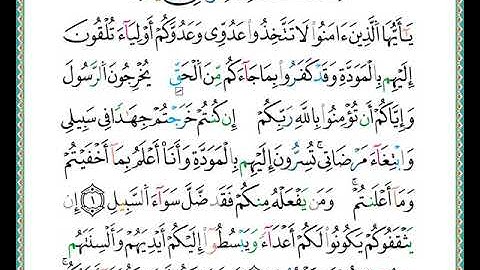 يَـٰٓأَيُّهَا ٱلَّذِينَ ءَامَنُوا۟ لَا تَتَّخِذُوا۟ عَدُوِّى وَعَدُوَّكُمْ أَوْلِيَآءَ تُلْقُونَ
إِلَيْهِم بِٱلْمَوَدَّةِ وَقَدْ كَفَرُوا۟ بِمَا جَآءَكُم مِّنَ ٱلْحَقِّ يُخْرِجُونَ ٱلرَّسُولَ
وَإِيَّاكُمْ أَن تُؤْمِنُوا۟ بِٱللَّهِ رَبِّكُمْ إِن كُنتُمْ خَرَجْتُمْ جِهَـٰدًا فِى سَبِيلِى
وَٱبْتِغَآءَ مَرْضَاتِى ۚ تُسِرُّونَ إِلَيْهِم بِٱلْمَوَدَّةِ وَأَنَا۠ أَعْلَمُ بِمَآ أَخْفَيْتُمْ
وَمَآ أَعْلَنتُمْ ۚ وَمَن يَفْعَلْهُ مِنكُمْ فَقَدْ ضَلَّ سَوَآءَ ٱلسَّبِيلِ ١ إِن
يَثْقَفُوكُمْ يَكُونُوا۟ لَكُمْ أَعْدَآءً وَيَبْسُطُوٓا۟ إِلَيْكُمْ أَيْدِيَهُمْ وَأَلْسِنَتَهُم